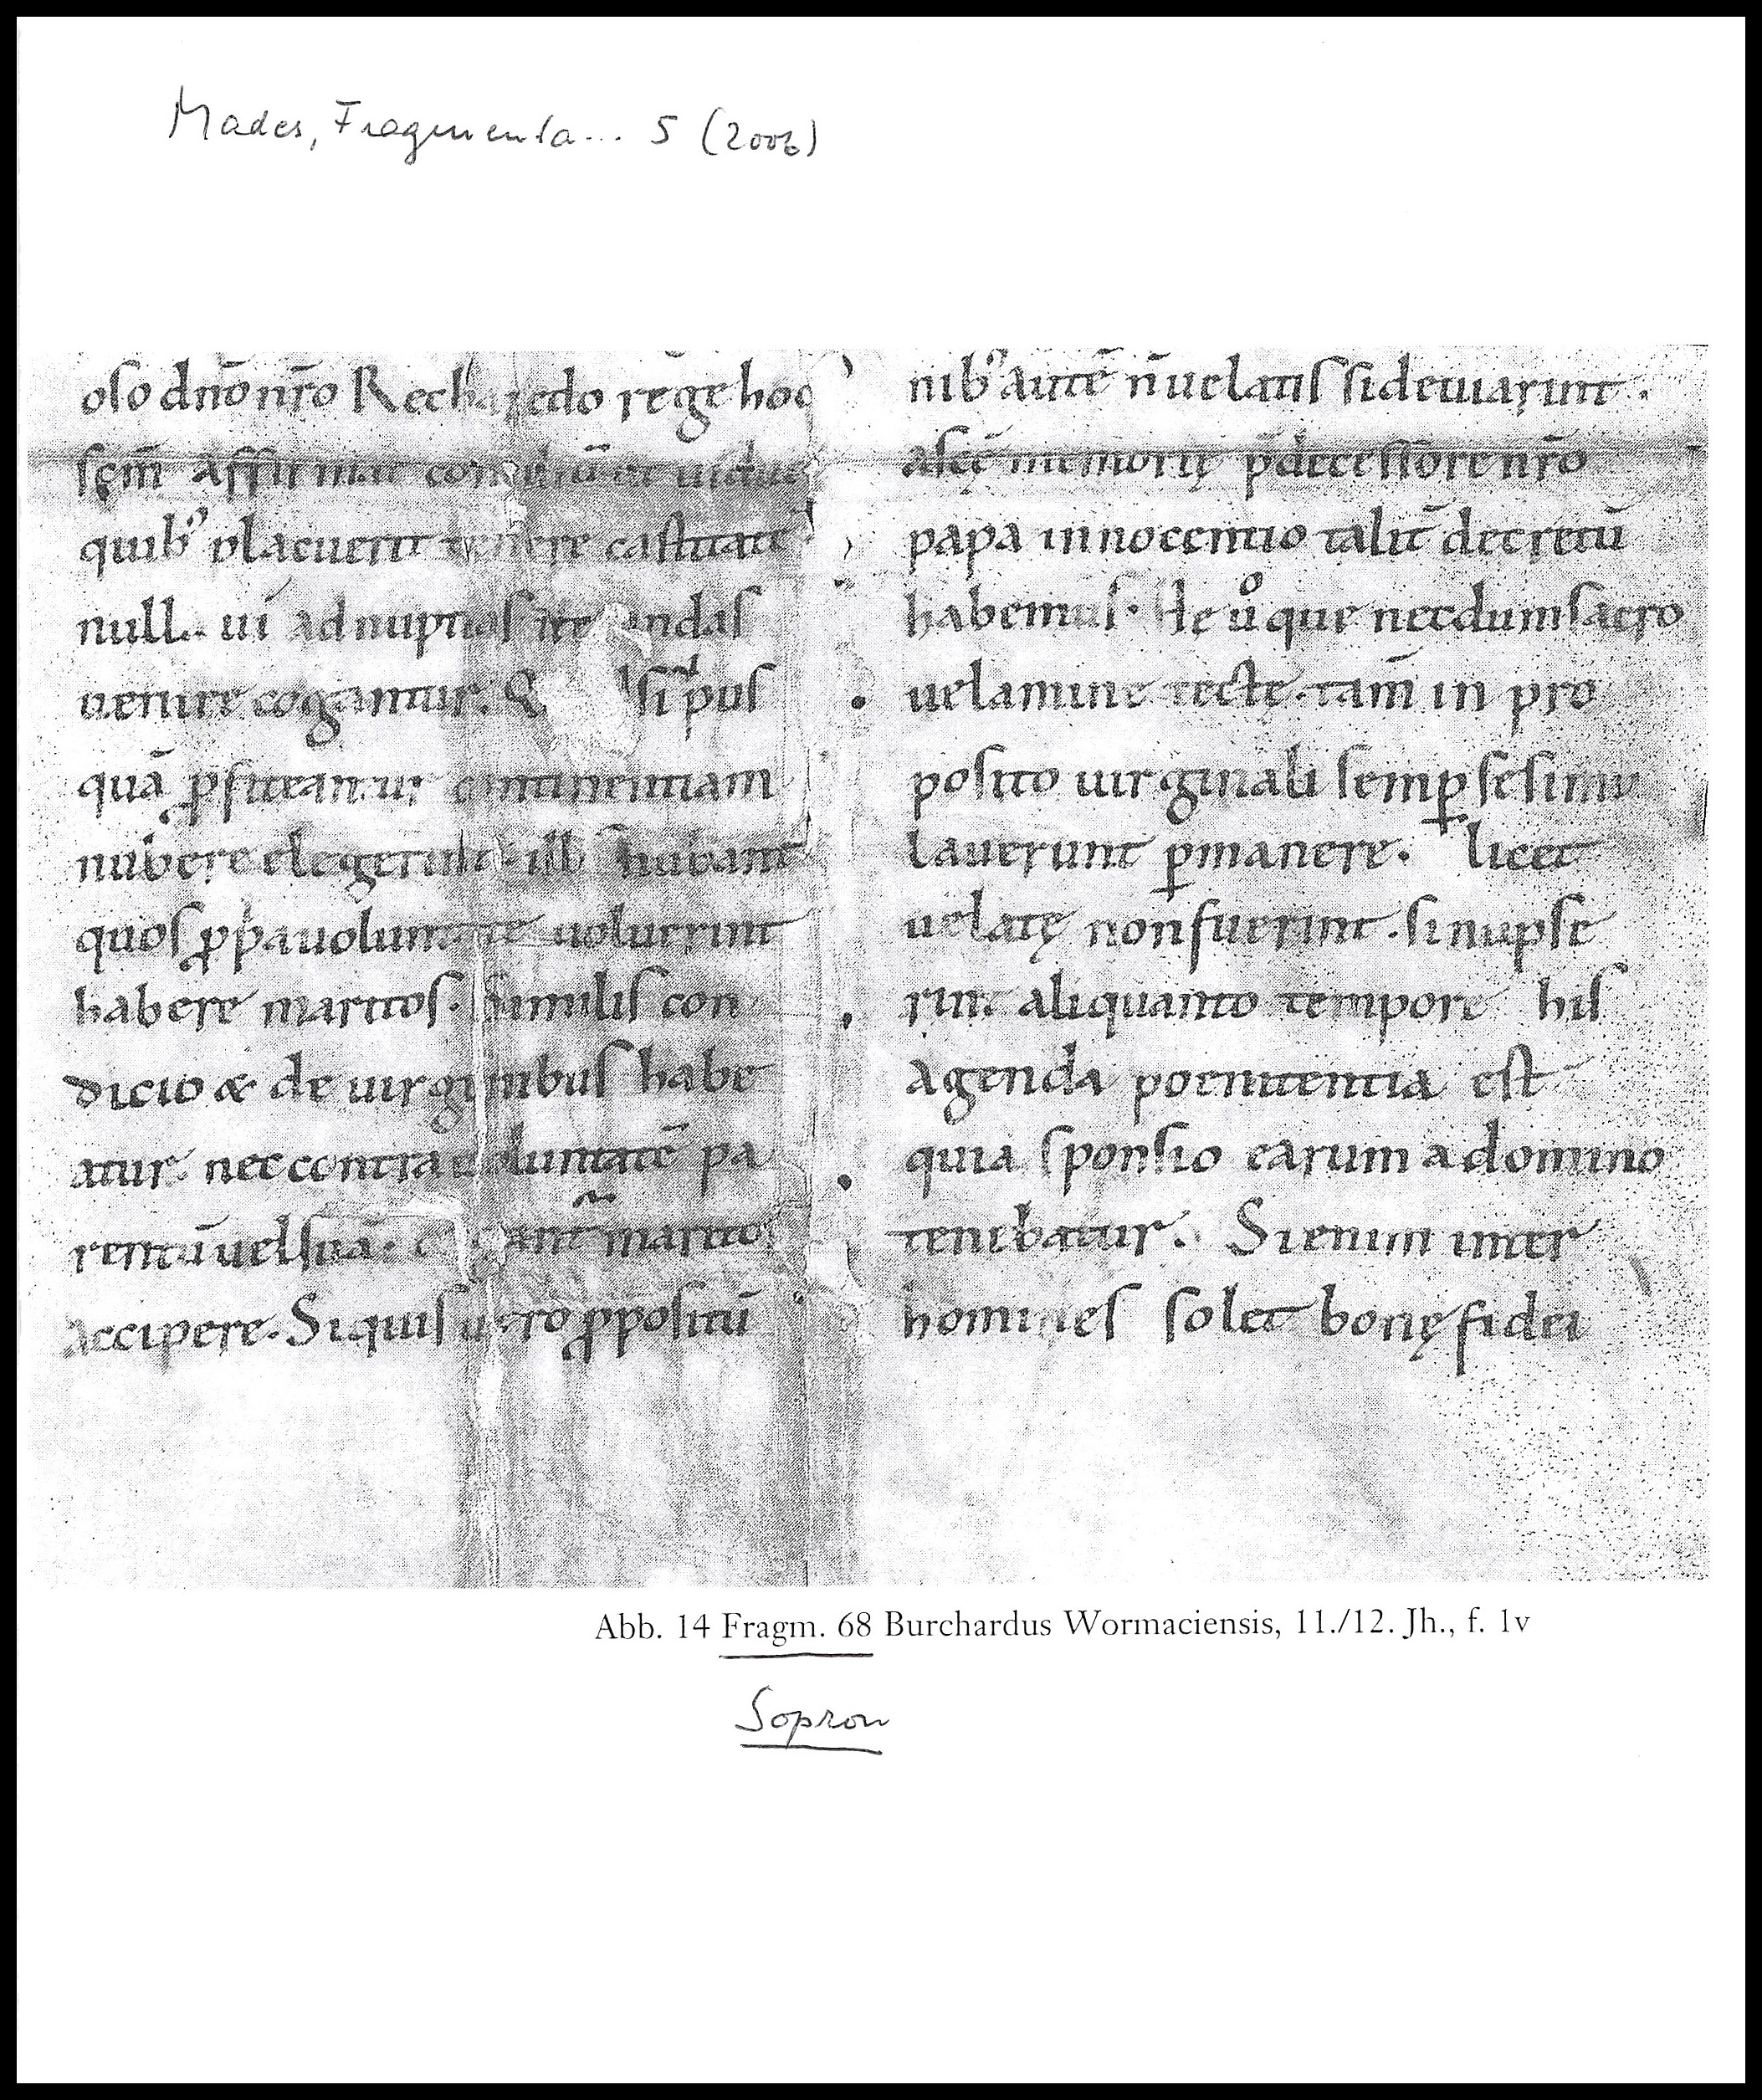 Mades, Fragmenta... 5 (2006)
oso dn̄o nr̄o Recharedo rege hoc
sc̄m affirmat
quib᷒ placuerit tenere castitatē
ui ad nuptias
uenire cogantur. si p͛us
quā ꝓfiteantur continentiam
nubere elegerint. illis nubant
quos ꝓpria uoluntate uoluerint
habere maritos. Similis con
dicio & de uirginibus habe
atur. nec contra uoluntatē pa
rentū uel suā. marito
accipere. Siquis uero ꝓpositū
nib᷒ autē n̄ uelatis si deuiarint.
a scę̄ memorię p̄decessore nr̄o
papa innocentio talit̄ decretū
habemus. He ůo que necdum sacro
uelamine tectę. tam̄ in pro
posito uirginali semꝑ se simu
lauerunt ꝑmanere. licet
uelatę non fuerint. si nupse
rint aliquanto tempore his
agenda poenitentia est
quia sponsio earum a domino
tenebatur. Si enim inter
homines solet bonę fidei
Abb. 14 Fragm. 68 Burchardus Wormaciensis, 11./12. Jh., f. 1v
Sopron